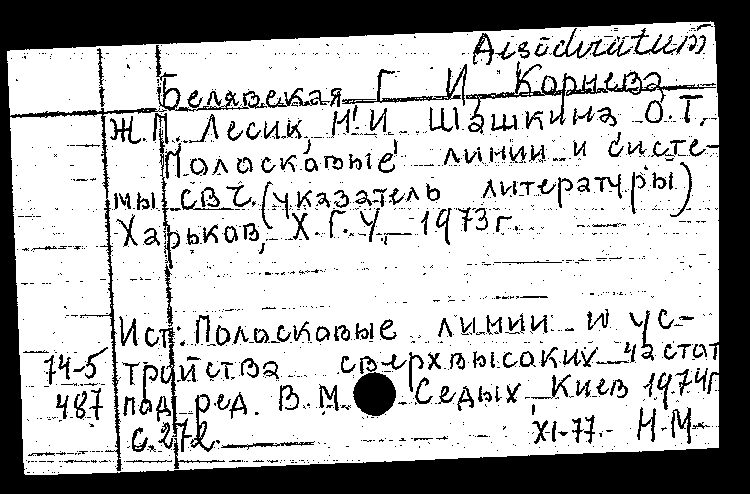 Белявская Г И Корнева
Ж.П. Лесик, Н.И Шашкина О.Т.
Полосковые линии и систе-
мы СВЧ. (указатель литературы)
Харьков, Х.Г.У, 1973г.
Ист: Полосковые линии и ус-
74-5 тройства сверхвысоких частот
487 под ред. В.М Седых, Киев 1974г
с.272. XI-77. Н-М-